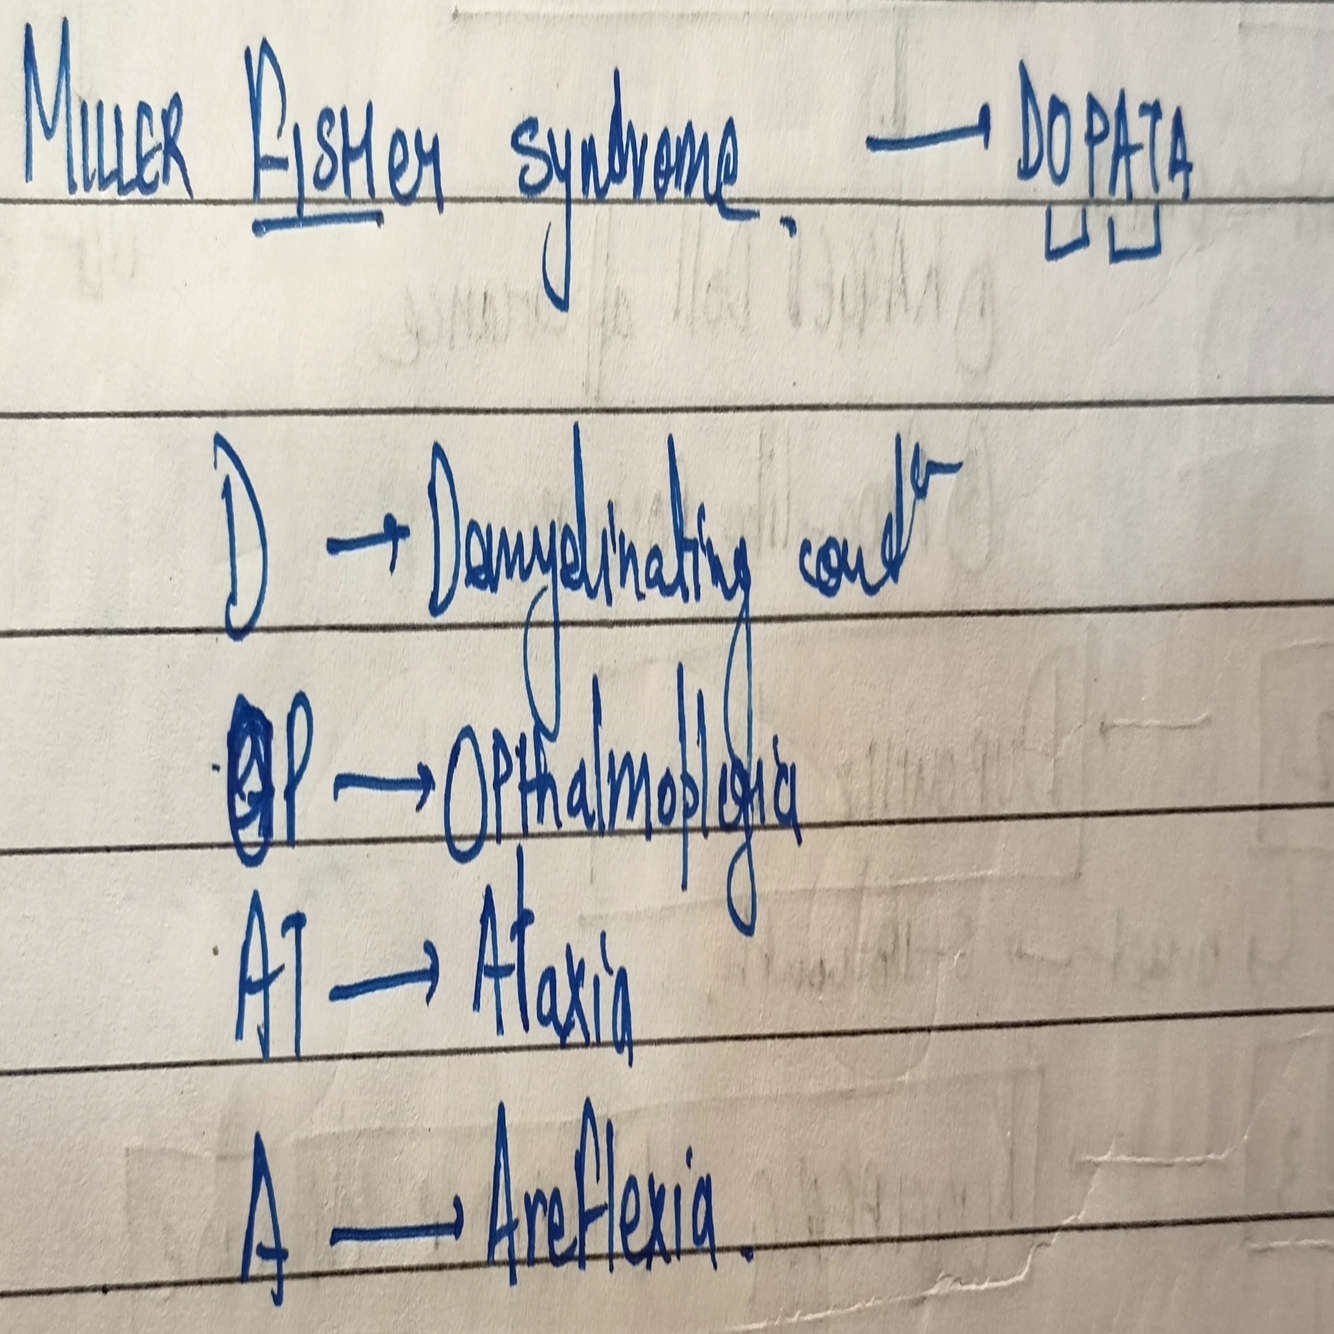 MILLER FISHer syndrome. → DOPATA
D → Demyelinating condn
OP → OPthalmoplegia
AT → ATaxia
A → Areflexia.